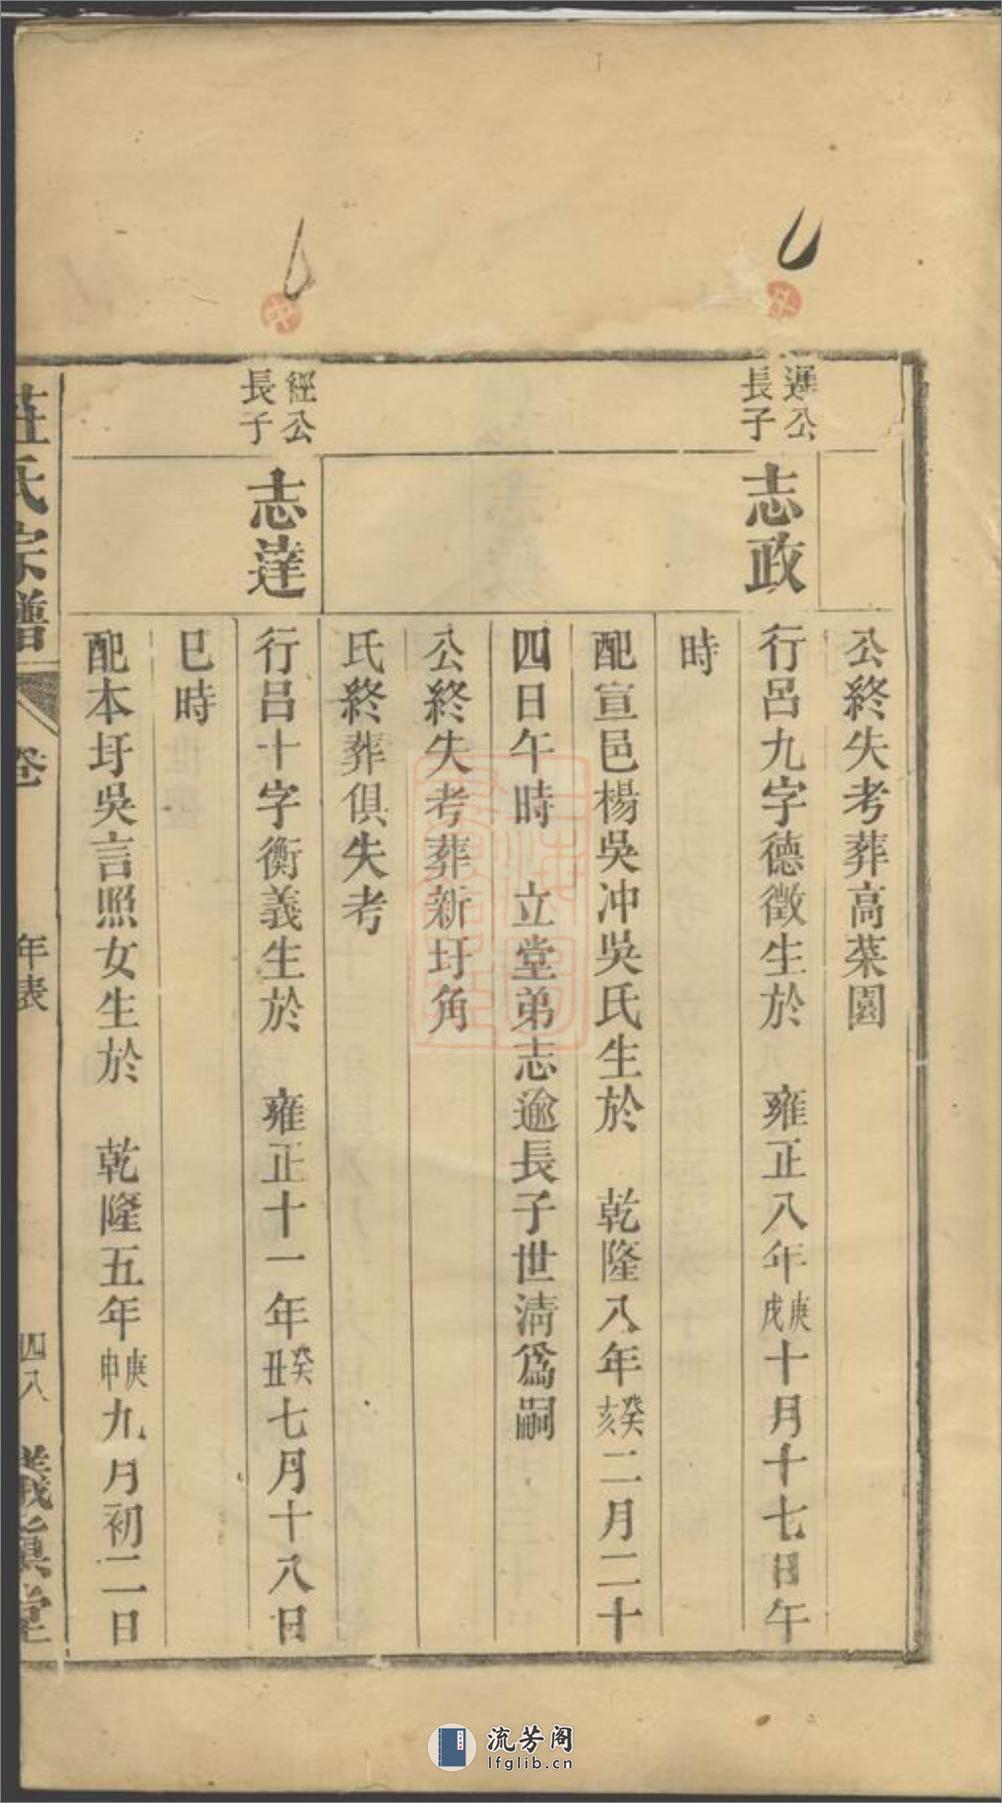 公終失考葬高菜園
遜公
長子
志政
行呂九字德徵生於　雍正八年庚戌十月十七日午
時
配宣邑楊吳冲吳氏生於　乾隆八年癸亥二月二十
四日午時　立堂弟志逾長子世清爲嗣
公終失考葬新圩角
氏終葬俱失考
經公
長子
志達
行呂十字衡義生於　雍正十一年癸丑七月十八日
巳時
配本圩吳言照女生於　乾隆五年庚申九月初二日
莊氏宗譜
卷
年表
四八
義眞堂
流芳阁
lfglib.cn